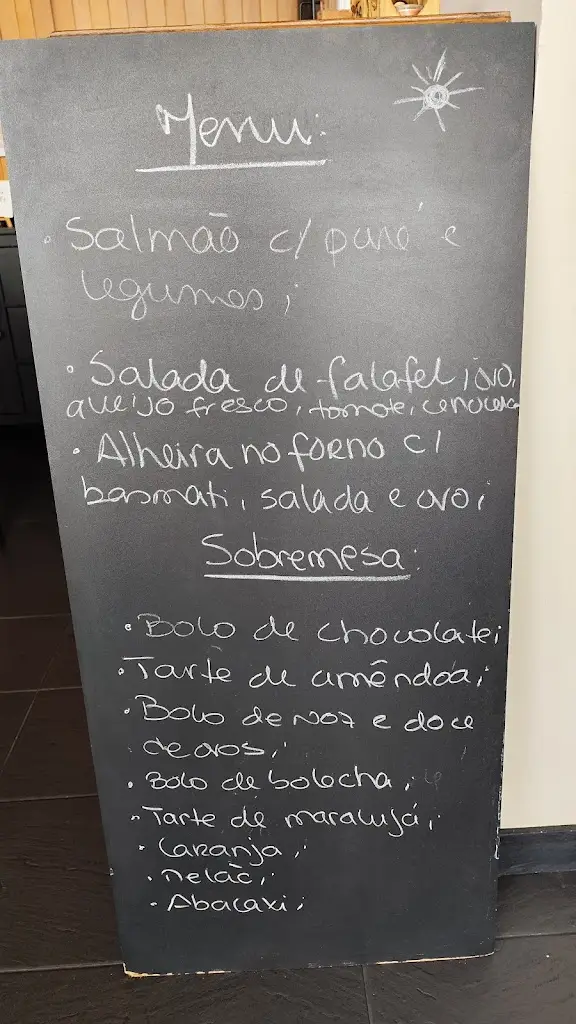 Menu:
• Salmão c/ puré e
legumes;
• Salada de falafel, ovo,
queijo fresco, tomate, cenoura
• Alheira no forno c/
basmati, salada e ovo;
Sobremesa:
• Bolo de chocolate;
• Tarte de amêndoa;
• Bolo de noz e doce
de ovos;
• Bolo de bolacha;
• Tarte de maracujá;
• Laranja;
• Melão;
• Abacaxi;